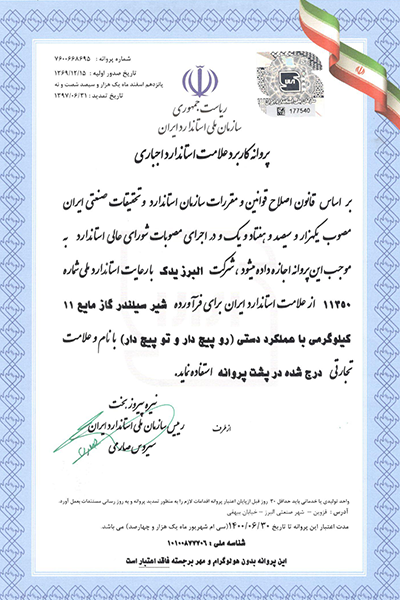 شماره پروانه : ۷۶۰۰۶۶۸۶۹۵
تاریخ صدور اولیه : ۱۳۶۹/۱۲/۱۵
پانزدهم اسفند ماه یک هزار و سیصد شصت و نه
تاریخ تمدید : ۱۳۹۷/۰۶/۳۱
177540
ریاست جمهوری
سازمان ملی استاندارد ایران
پروانه کاربرد علامت استاندارد اجباری
بر اساس قانون اصلاح قوانین و مقررات سازمان استاندارد و تحقیقات صنعتی ایران
مصوب یکهزار و سیصد و هفتاد و یک و در اجرای مصوبات شورای عالی استاندارد به
موجب این پروانه اجازه داده میشود ، شرکت البرز یدک با رعایت استاندارد ملی شماره
۱۱۳۵۰ از علامت استاندارد ایران برای فرآورده شیر سیلندر گاز مایع ۱۱
کیلوگرمی با عملکرد دستی (رو پیچ دار و تو پیچ دار) با نام و علامت
تجارتی درج شده در پشت پروانه استفاده نماید.
نیره پیروز بخت
رییس سازمان ملی استاندارد ایران
از طرف
سیروس صارمی
واحد تولیدی یا خدماتی باید حداقل ۳۰ روز قبل از پایان اعتبار پروانه اقدامات لازم را به منظور تمدید پروانه و به روز رسانی مستندات بعمل آورد.
آدرس : قزوین - شهر صنعتی البرز - خیابان بیهقی
مدت اعتبار این پروانه تا تاریخ ۱۴۰۰/۰۶/۳۰ (سی ام شهریور ماه یک هزار و چهارصد) می باشد.
شناسه ملی : ۱۰۱۰۰۸۷۷۷۰۶
این پروانه بدون هولوگرام و مهر برجسته فاقد اعتبار است